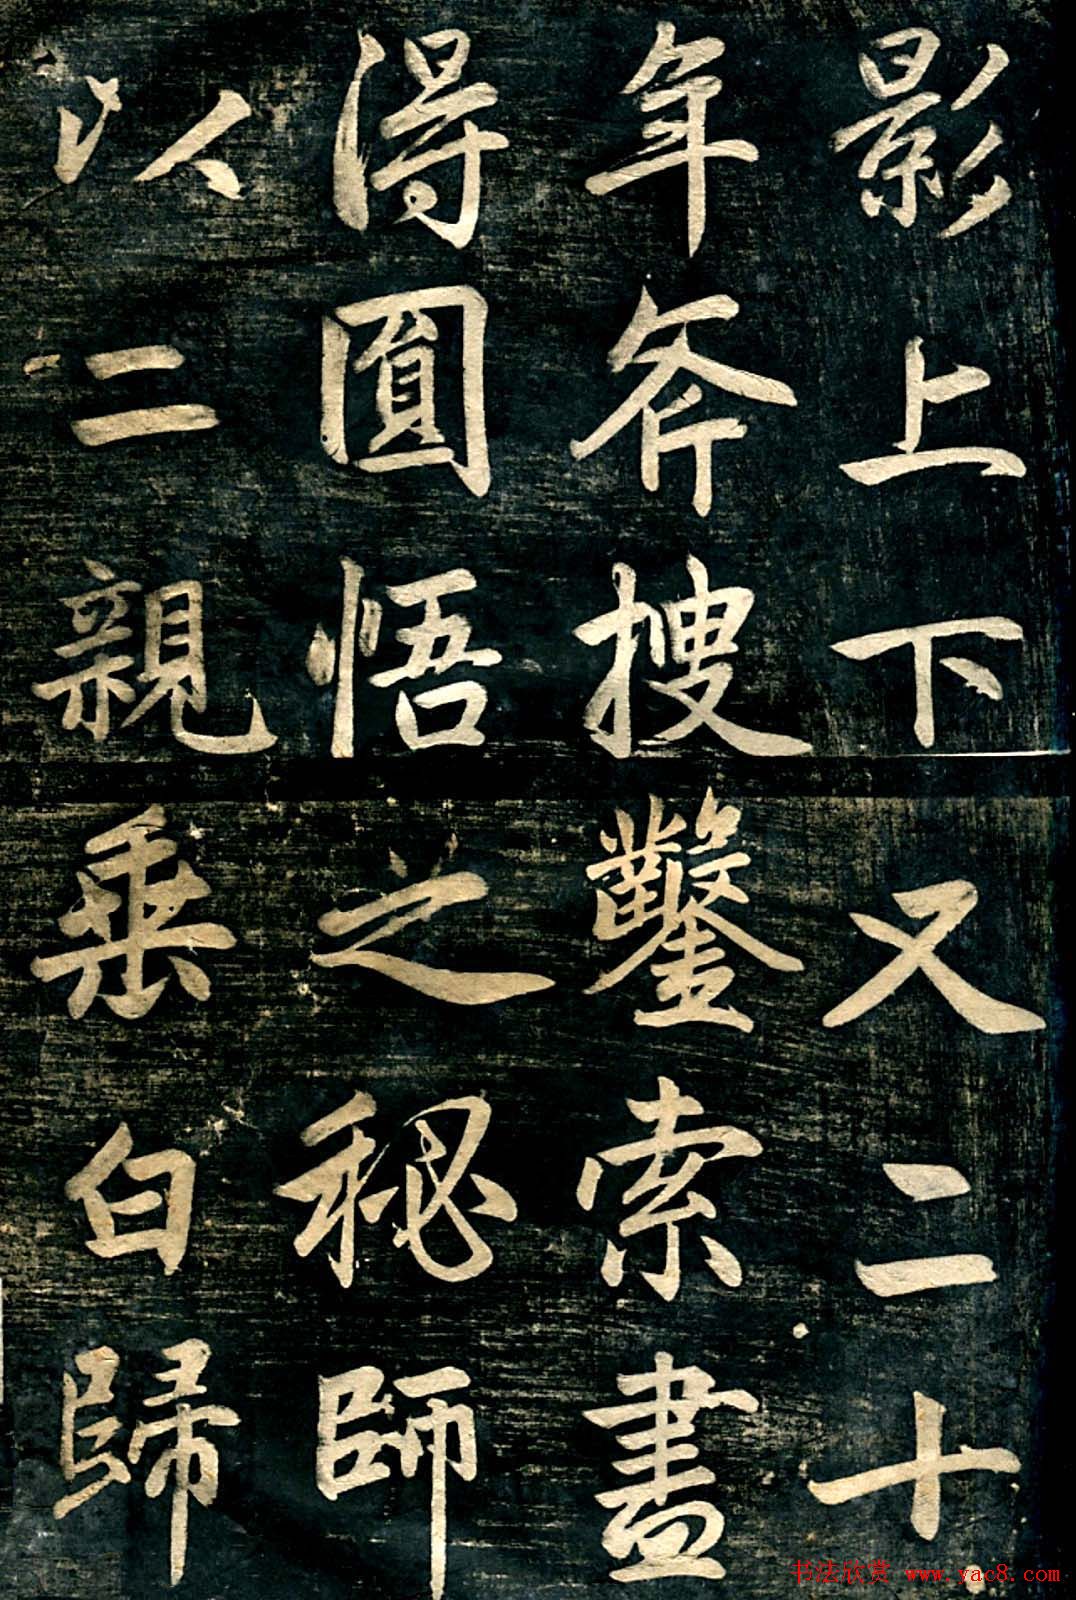 影上下又二十
年斧搜鑿索盡
得圓悟之秘師
以二親垂白歸
书法欣赏 www.yac8.com